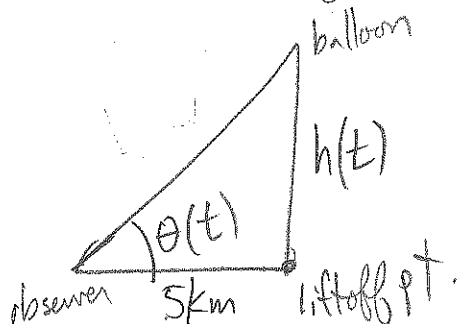 balloon
h(t)
θ(t)
observer
5km
liftoff pt.